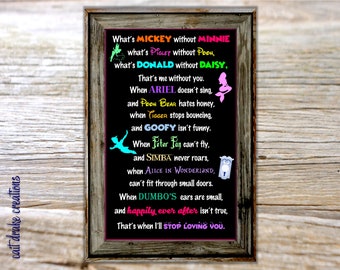 What's MICKEY without MINNIE
what's Piglet without Pooh,
what's DONALD without DAISY.
That's me without you.
When ARIEL doesn't sing,
and Pooh Bear hates honey,
when Tigger stops bouncing,
and GOOFY isn't funny.
When Peter Pan can't fly,
and SIMBA never roars,
when Alice in Wonderland,
can't fit through small doors.
When DUMBO'S ears are small,
and happily ever after isn't true,
That's when I'll STOP LOVING YOU.